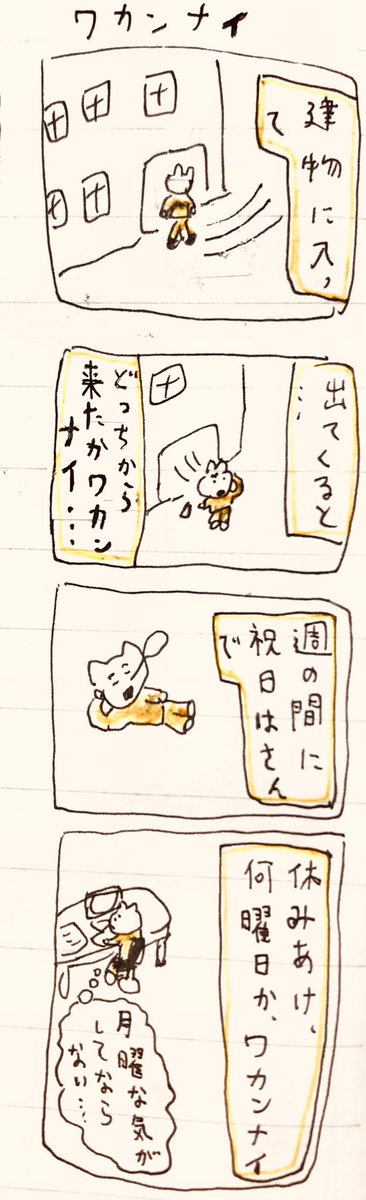 ワカンナイ
建物に入っ
て
出てくると
…
どっちから
来たかワカン
ナイ…
週の間に
祝日はさん
で
休みあけ、
何曜日か、ワカンナイ
月曜な気が
してなら
ない…